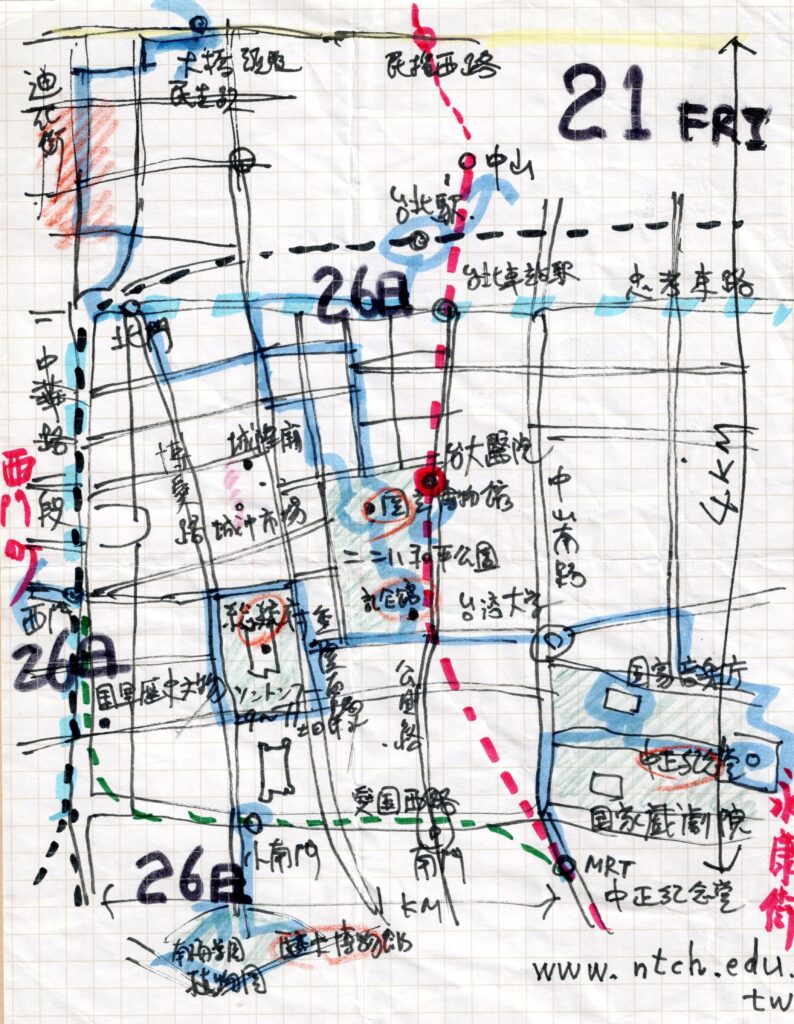 大橋頭
民生路
民権西路
21 FRI
迪化街
中山
台北駅
台北車站駅
忠孝東路
26日
北門
中華路一段
西門町
城隍廟
博愛路
城中市場
台大醫院
国立博物館
中山南路
4KM
二二八和平公園
記念館
台湾大学
西門
26日
総統府
国軍歴史文物
9〜11
公園路
国家音楽庁
中正紀念堂
国家戯劇院
永康街
愛国西路
小南門
南門
MRT
中正紀念堂
26日
1KM
植物園
www.ntch.edu.
tw